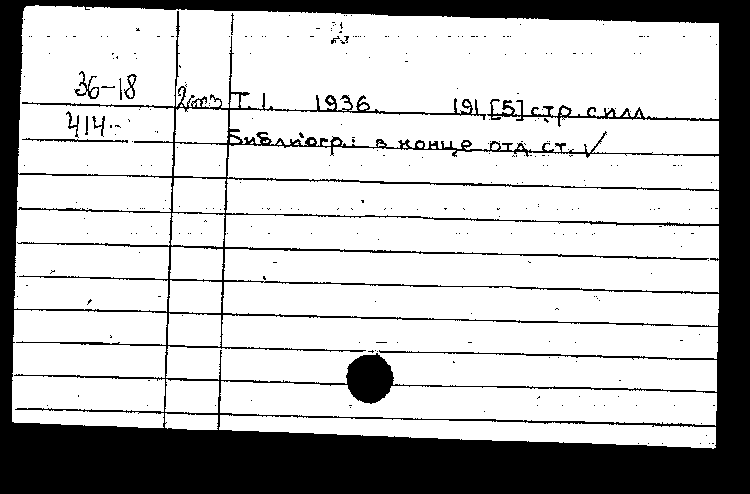 2
36-18 2экз Т. 1. 1936. 191, [5] стр. с илл.
414
Библиогр.: в конце отд. ст. √